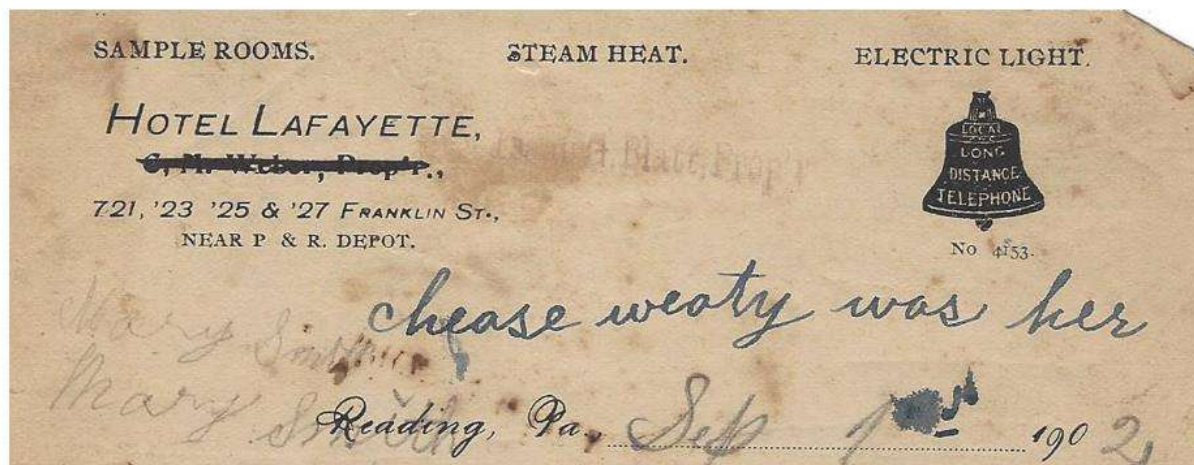 SAMPLE ROOMS. STEAM HEAT. ELECTRIC LIGHT.
HOTEL LAFAYETTE,
C. M. Weber, Prop'r.,
Prop'r
721, '23 '25 & '27 FRANKLIN ST.,
NEAR P & R. DEPOT.
LOCAL
LONG
DISTANCE
TELEPHONE
No 4153.
chease weaty was her
Mary Smith
Mary Smith
Reading, Pa. Sep 1 1902